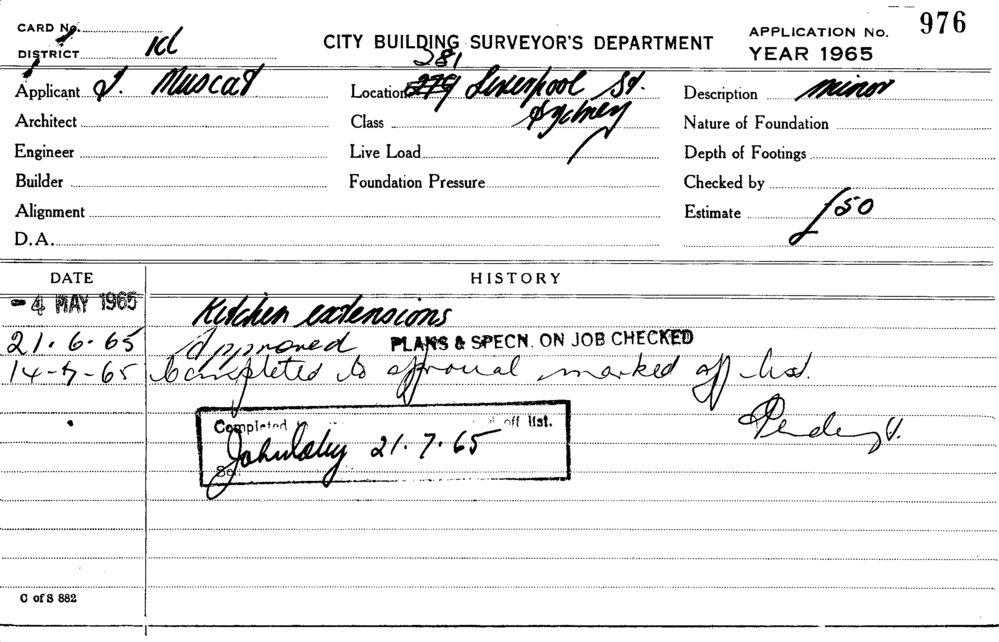 CARD No.
976
APPLICATION No.
CITY BUILDING SURVEYOR'S DEPARTMENT
DISTRICT
YEAR 1965
281
Applicant J. Muscat
Location 279 Liverpool St.
Sydney
Description minor
Architect
Class
Nature of Foundation
Engineer
Live Load
Depth of Footings
Builder
Foundation Pressure
Checked by
Alignment
Estimate £50
D.A.
DATE HISTORY
- 4 MAY 1965 Kitchen extensions
21.6.65 Approved PLANS & SPECN. ON JOB CHECKED
14-7-65 Completed to approval marked off list.
Completed off list.
21.7.65
C of S 882